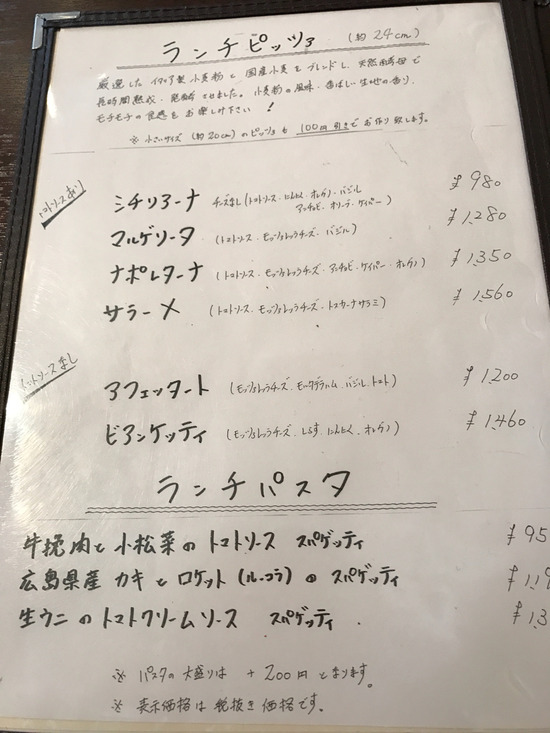 ランチピッツァ (約24cm)
厳選したイタリア製小麦粉と国産小麦をブレンドし、天然酵母で
長時間熟成・発酵させました。小麦粉の風味・香ばしい生地の香り、
モチモチの食感をお楽しみ下さい!
※ 小さいサイズ (約20cm) のピッツァも 100円引きでお作り致します。
トマトソースあり
シチリアーナ チーズなし(トマトソース・にんにく・オレガノ・バジル ¥980
アンチョビ・オリーブ・ケイパー)
マルゲリータ (トマトソース・モッツァレラチーズ・バジル) ¥1,280
ナポレターナ (トマトソース・モッツァレラチーズ・アンチョビ・ケイパー・オレガノ) ¥1,350
サラーメ (トマトソース・モッツァレラチーズ・トスカーナサラミ) ¥1,560
トマトソースなし
アフェッタート (モッツァレラチーズ・モルタデッラハム・バジル・トマト) ¥1,200
ビアンケッティ (モッツァレラチーズ・しらす・にんにく・オレガノ) ¥1,460
ランチパスタ
牛挽肉と小松菜のトマトソース スパゲッティ ¥95
広島県産カキとロケット(ルッコラ)のスパゲッティ ¥1,1
生ウニのトマトクリームソース スパゲッティ ¥1,3
※ パスタの大盛りは +200円となります。
※ 表示価格は税抜き価格です。